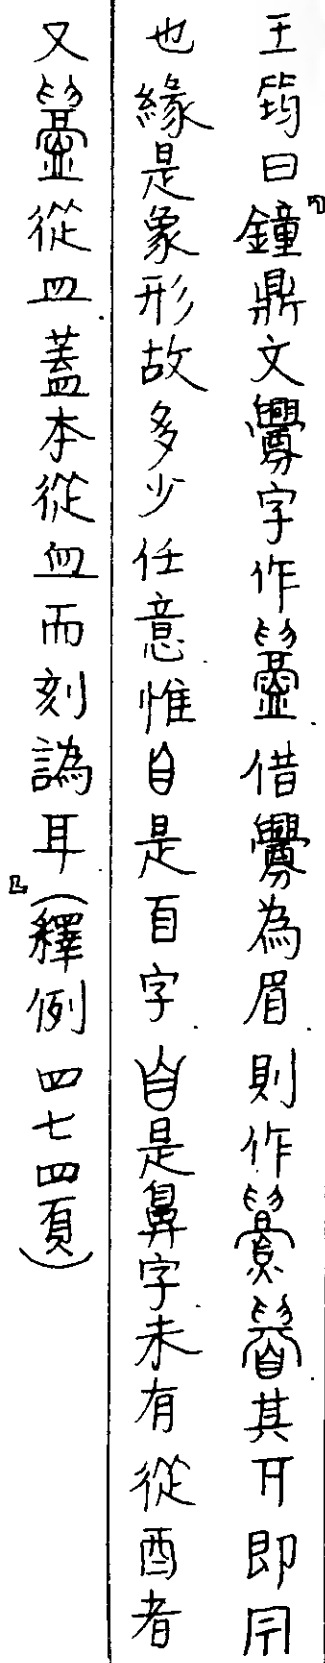 王筠曰『鐘鼎文釁字作借釁為眉則作其即
也緣是象形故多少任意惟自是𦣻字是鼻字未有從酉者
又從皿蓋本從血而刻譌耳』(釋例四七四頁)